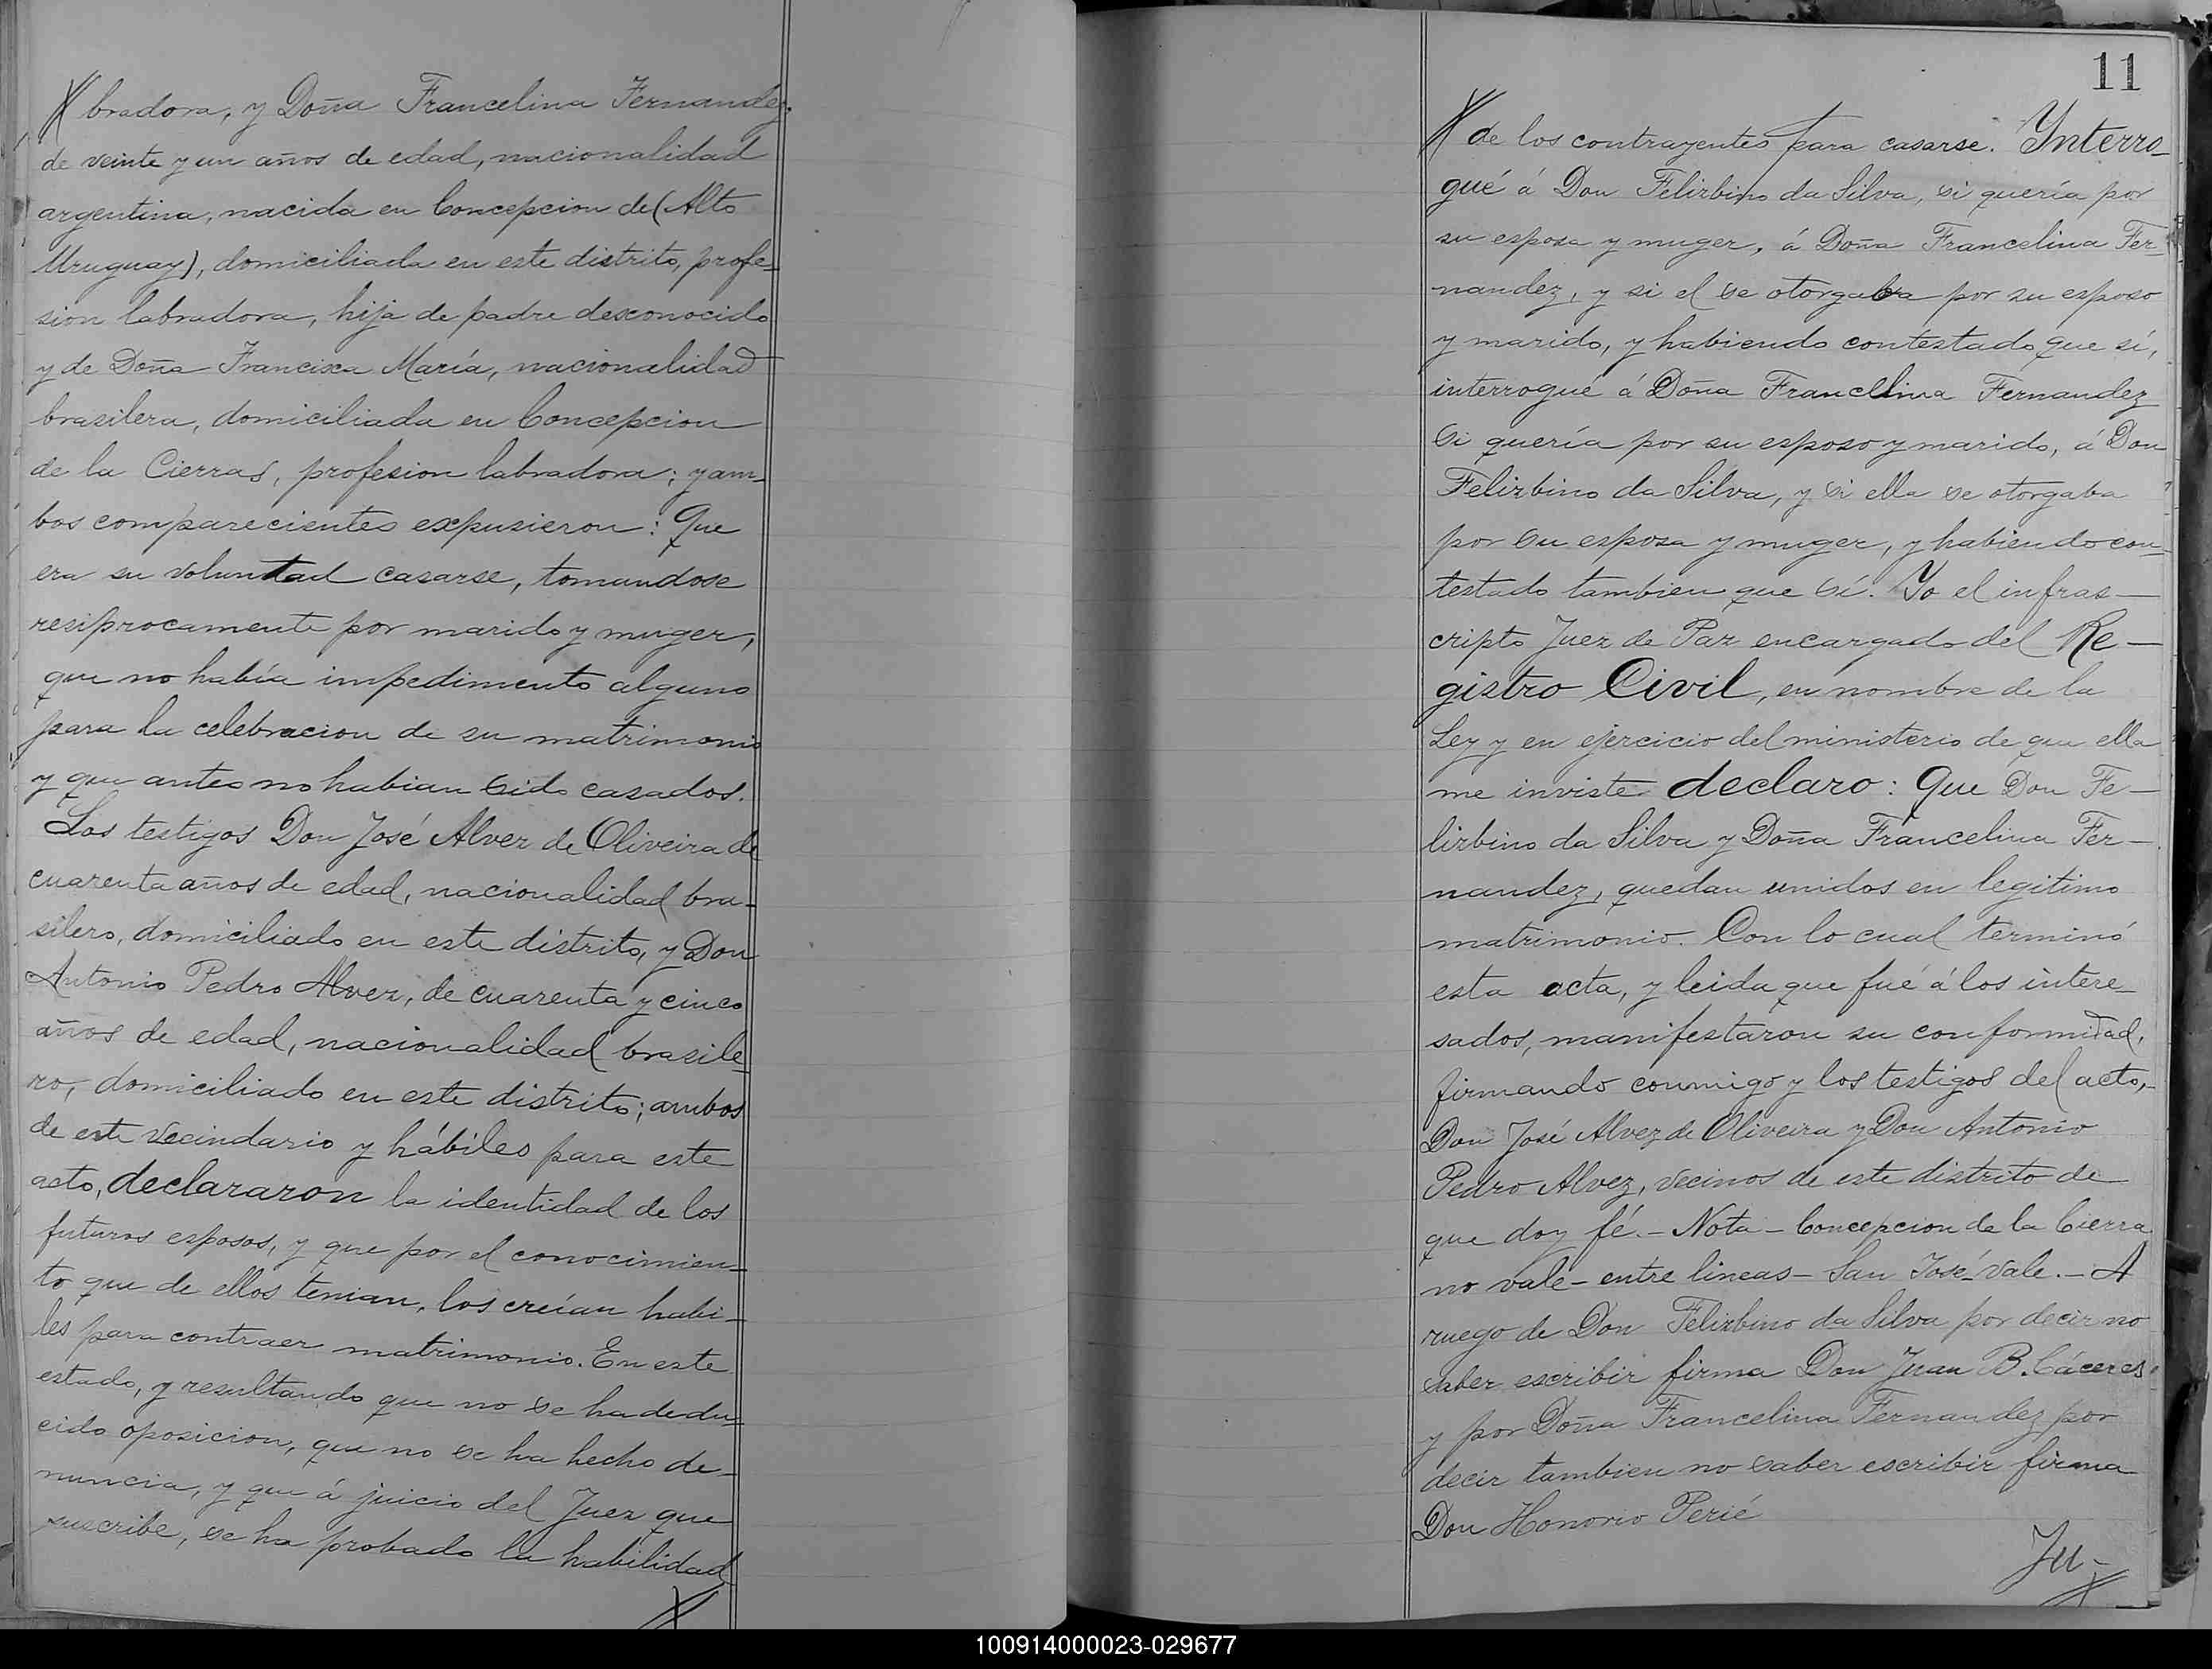 bradora, y Doña Francelina Fernandez.
de veinte y un años de edad, nacionalidad
argentina, nacida en Concepcion de (Alto
Uruguay), domiciliada en este distrito, profe-
sion labradora, hija de padre desconocido
y de Doña Francisca María, nacionalidad
brasilera, domiciliada en Concepcion
de la Cierras, profesion labradora; y am-
bos comparecientes expusieron: Que
era su voluntad casarse, tomandose
resiprocamente por marido y muger,
que no había impedimento alguno
para la celebracion de su matrimonio
y que antes no habian sido casados.
Los testigos Don José Alvez de Oliveira de
cuarenta años de edad, nacionalidad bra-
silero, domiciliado en este distrito, y Don
Antonio Pedro Alvez, de cuarenta y cinco
años de edad, nacionalidad brasile-
ro, domiciliado en este distrito; ambos
de este vecindario y hábiles para este
acto, declararon la identidad de los
futuros esposos, y que por el conocimien-
to que de ellos tenian, los creían habi-
les para contraer matrimonio. En este
estado, y resultando que no se ha dedu-
cido oposicion, que no se ha hecho de-
nuncia, y que á juicio del Juez que
suscribe, se ha probado la habilidad
11
de los contrayentes para casarse. Ynterro-
gué á Don Felizbino da Silva, si quería por
su esposa y muger, á Doña Francelina Fer-
nandez, y si el se otorgaba por su esposo
y marido, y habiendo contestado que sí,
interrogué á Doña Francelina Fernandez
si quería por su esposo y marido, á Don
Felizbino da Silva, y si ella se otorgaba
por su esposa y muger, y habiendo con-
testado tambien que sí. Yo el infras-
cripto Juez de Paz encargado del Re-
gistro Civil, en nombre de la
Ley y en ejercicio del ministerio de que ella
me inviste declaro: Que Don Fe-
lizbino da Silva y Doña Francelina Fer-
nandez, quedan unidos en legitimo
matrimonio. Con lo cual terminó
esta acta, y leida que fué á los intere-
sados, manifestaron su conformidad,
firmando conmigo y los testigos del acto,
Don José Alvez de Oliveira y Don Antonio
Pedro Alvez, vecinos de este distrito de
que doy fé. - Nota - Concepcion de la Cierra
no vale - entre lineas - San José - Vale. - A
ruego de Don Felizbino da Silva por decir no
saber escribir firma Don Juan B. Cáceres
y por Doña Francelina Fernandez por
decir tambien no saber escribir firma
Don Honorio Perié
Ju-
100914000023-029677